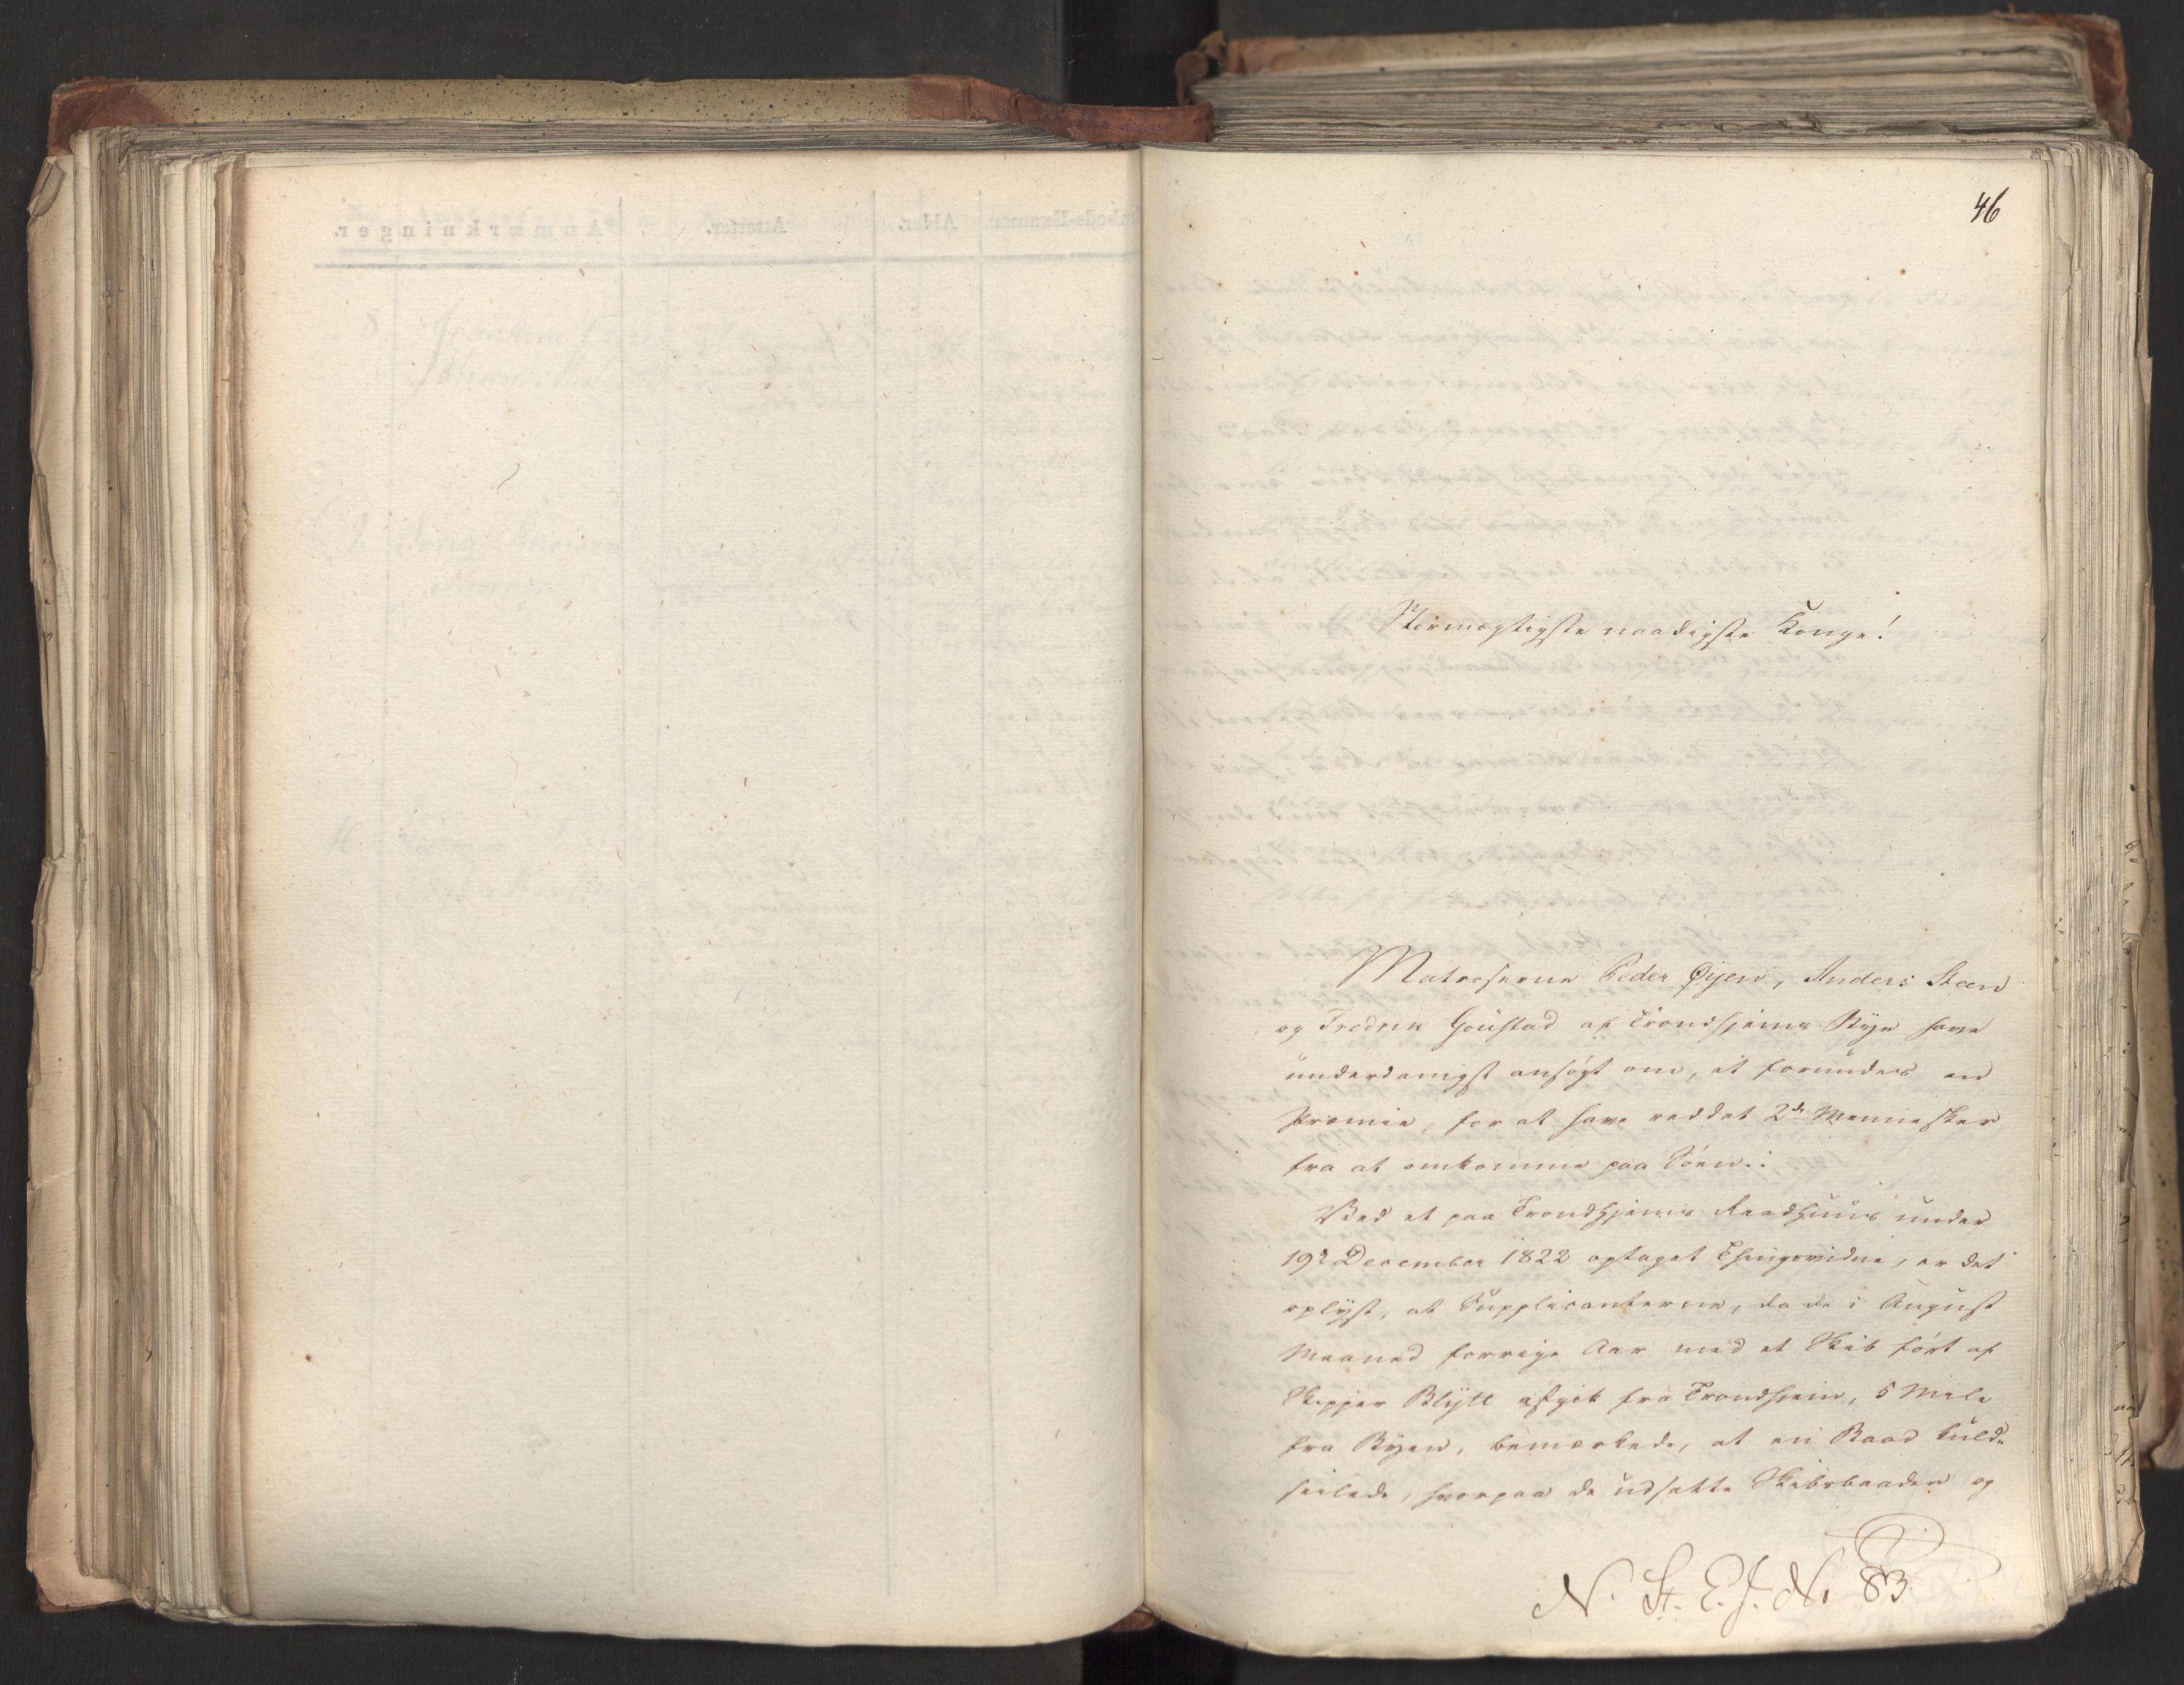 46
Stormægtigste naadigste Konge!
Matroserne Peder Øÿen, Anders Steen
og Fredrik Goustad af Trondhjems Bÿe have
underdanigst ansøgt om, at forundes en
Præmie, for at have reddet 2de Mennesker
fra at omkomme paa Søen.
Ved et paa Trondhjems Raadhuus under
19de December 1822 optaget Thingsvidne, er det
oplÿst, at Supplicanterne, da de i August
Maaned forrige Aar med et Skib ført af
Skipper Blÿtt afgik fra Trondhjem, 5 Mile
fra Bÿen, bemærkede, at en Baad kuld-
seilede, hvorpaa de udsatte Skibsbaaden og
N. St. E. J. No 83